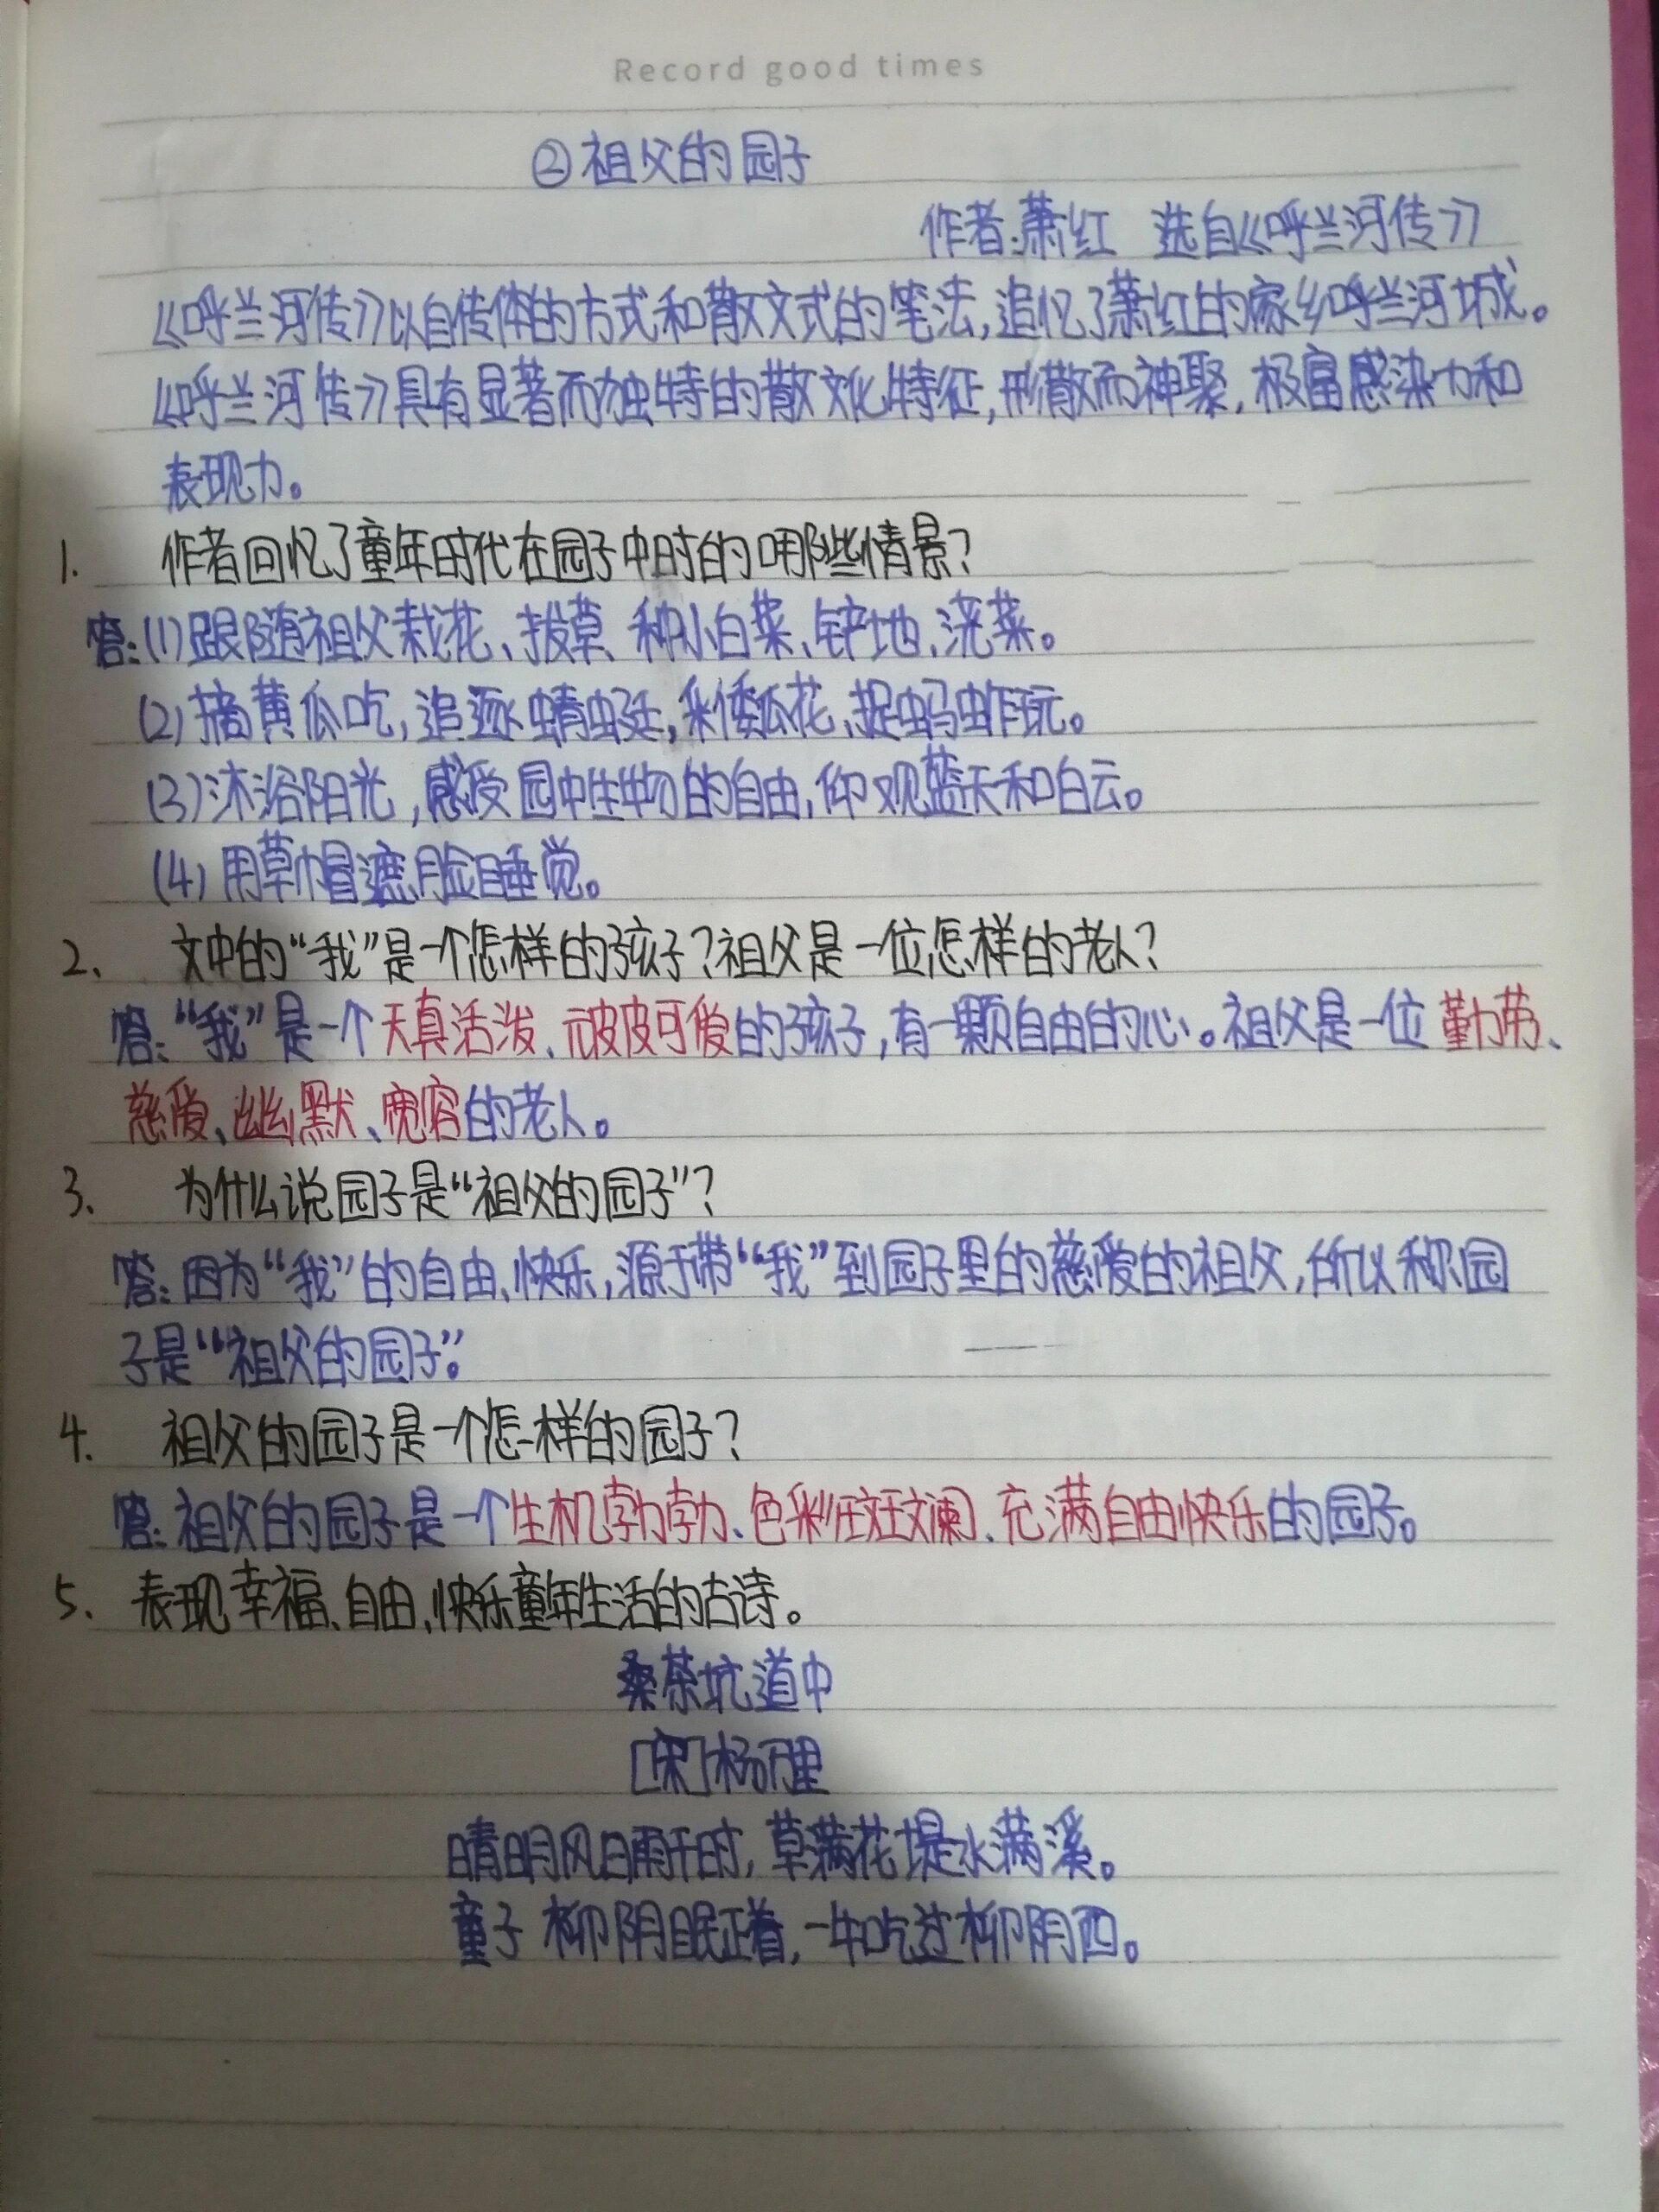 Record good times
②祖父的园子
作者:萧红 选自《呼兰河传》
《呼兰河传》以自传体的方式和散文式的笔法,追忆了萧红的家乡呼兰河城。
《呼兰河传》具有显著而独特的散文化特征,形散而神聚,极富感染力和
表现力。
1. 作者回忆了童年时代在园子中时的哪些情景?
答:(1)跟随祖父栽花、拔草、种小白菜、铲地、浇菜。
(2)摘黄瓜吃,追逐蜻蜓,采倭瓜花,捉蚂蚱玩。
(3)沐浴阳光,感受园中生物的自由,仰观蓝天和白云。
(4)用草帽遮脸睡觉。
2、 文中的“我”是一个怎样的孩子?祖父是一位怎样的老人?
答:“我”是一个天真活泼、顽皮可爱的孩子,有一颗自由的心。祖父是一位勤劳、
慈爱、幽默、宽容的老人。
3、 为什么说园子是“祖父的园子”?
答:因为“我”的自由、快乐,源于带“我”到园子里的慈爱的祖父,所以称园
子是“祖父的园子”。
4. 祖父的园子是一个怎样的园子?
答:祖父的园子是一个生机勃勃、色彩斑斓、充满自由快乐的园子。
5、表现幸福、自由、快乐童年生活的古诗。
桑茶坑道中
[宋]杨万里
晴明风日雨干时,草满花堤水满溪。
童子柳阴眠正着,一牛吃过柳阴西。